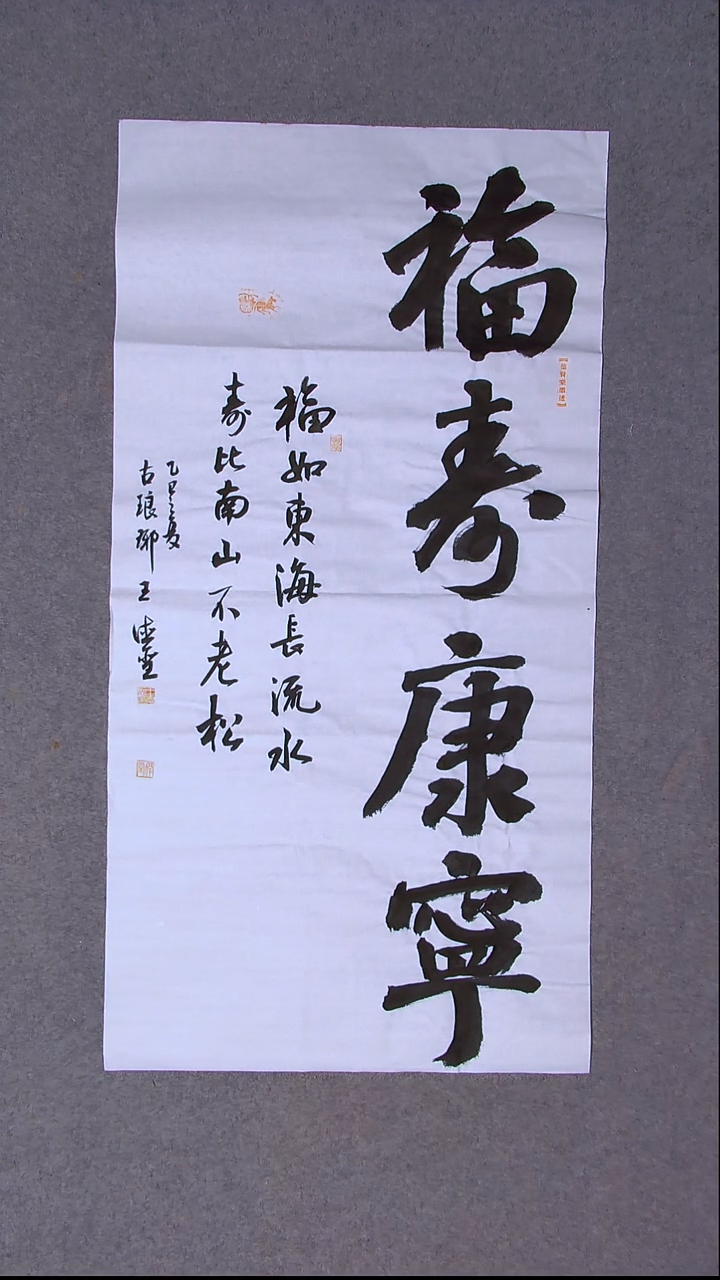 福寿康寧
福如東海長流水
寿比南山不老松
乙巳之夏
古琅琊王